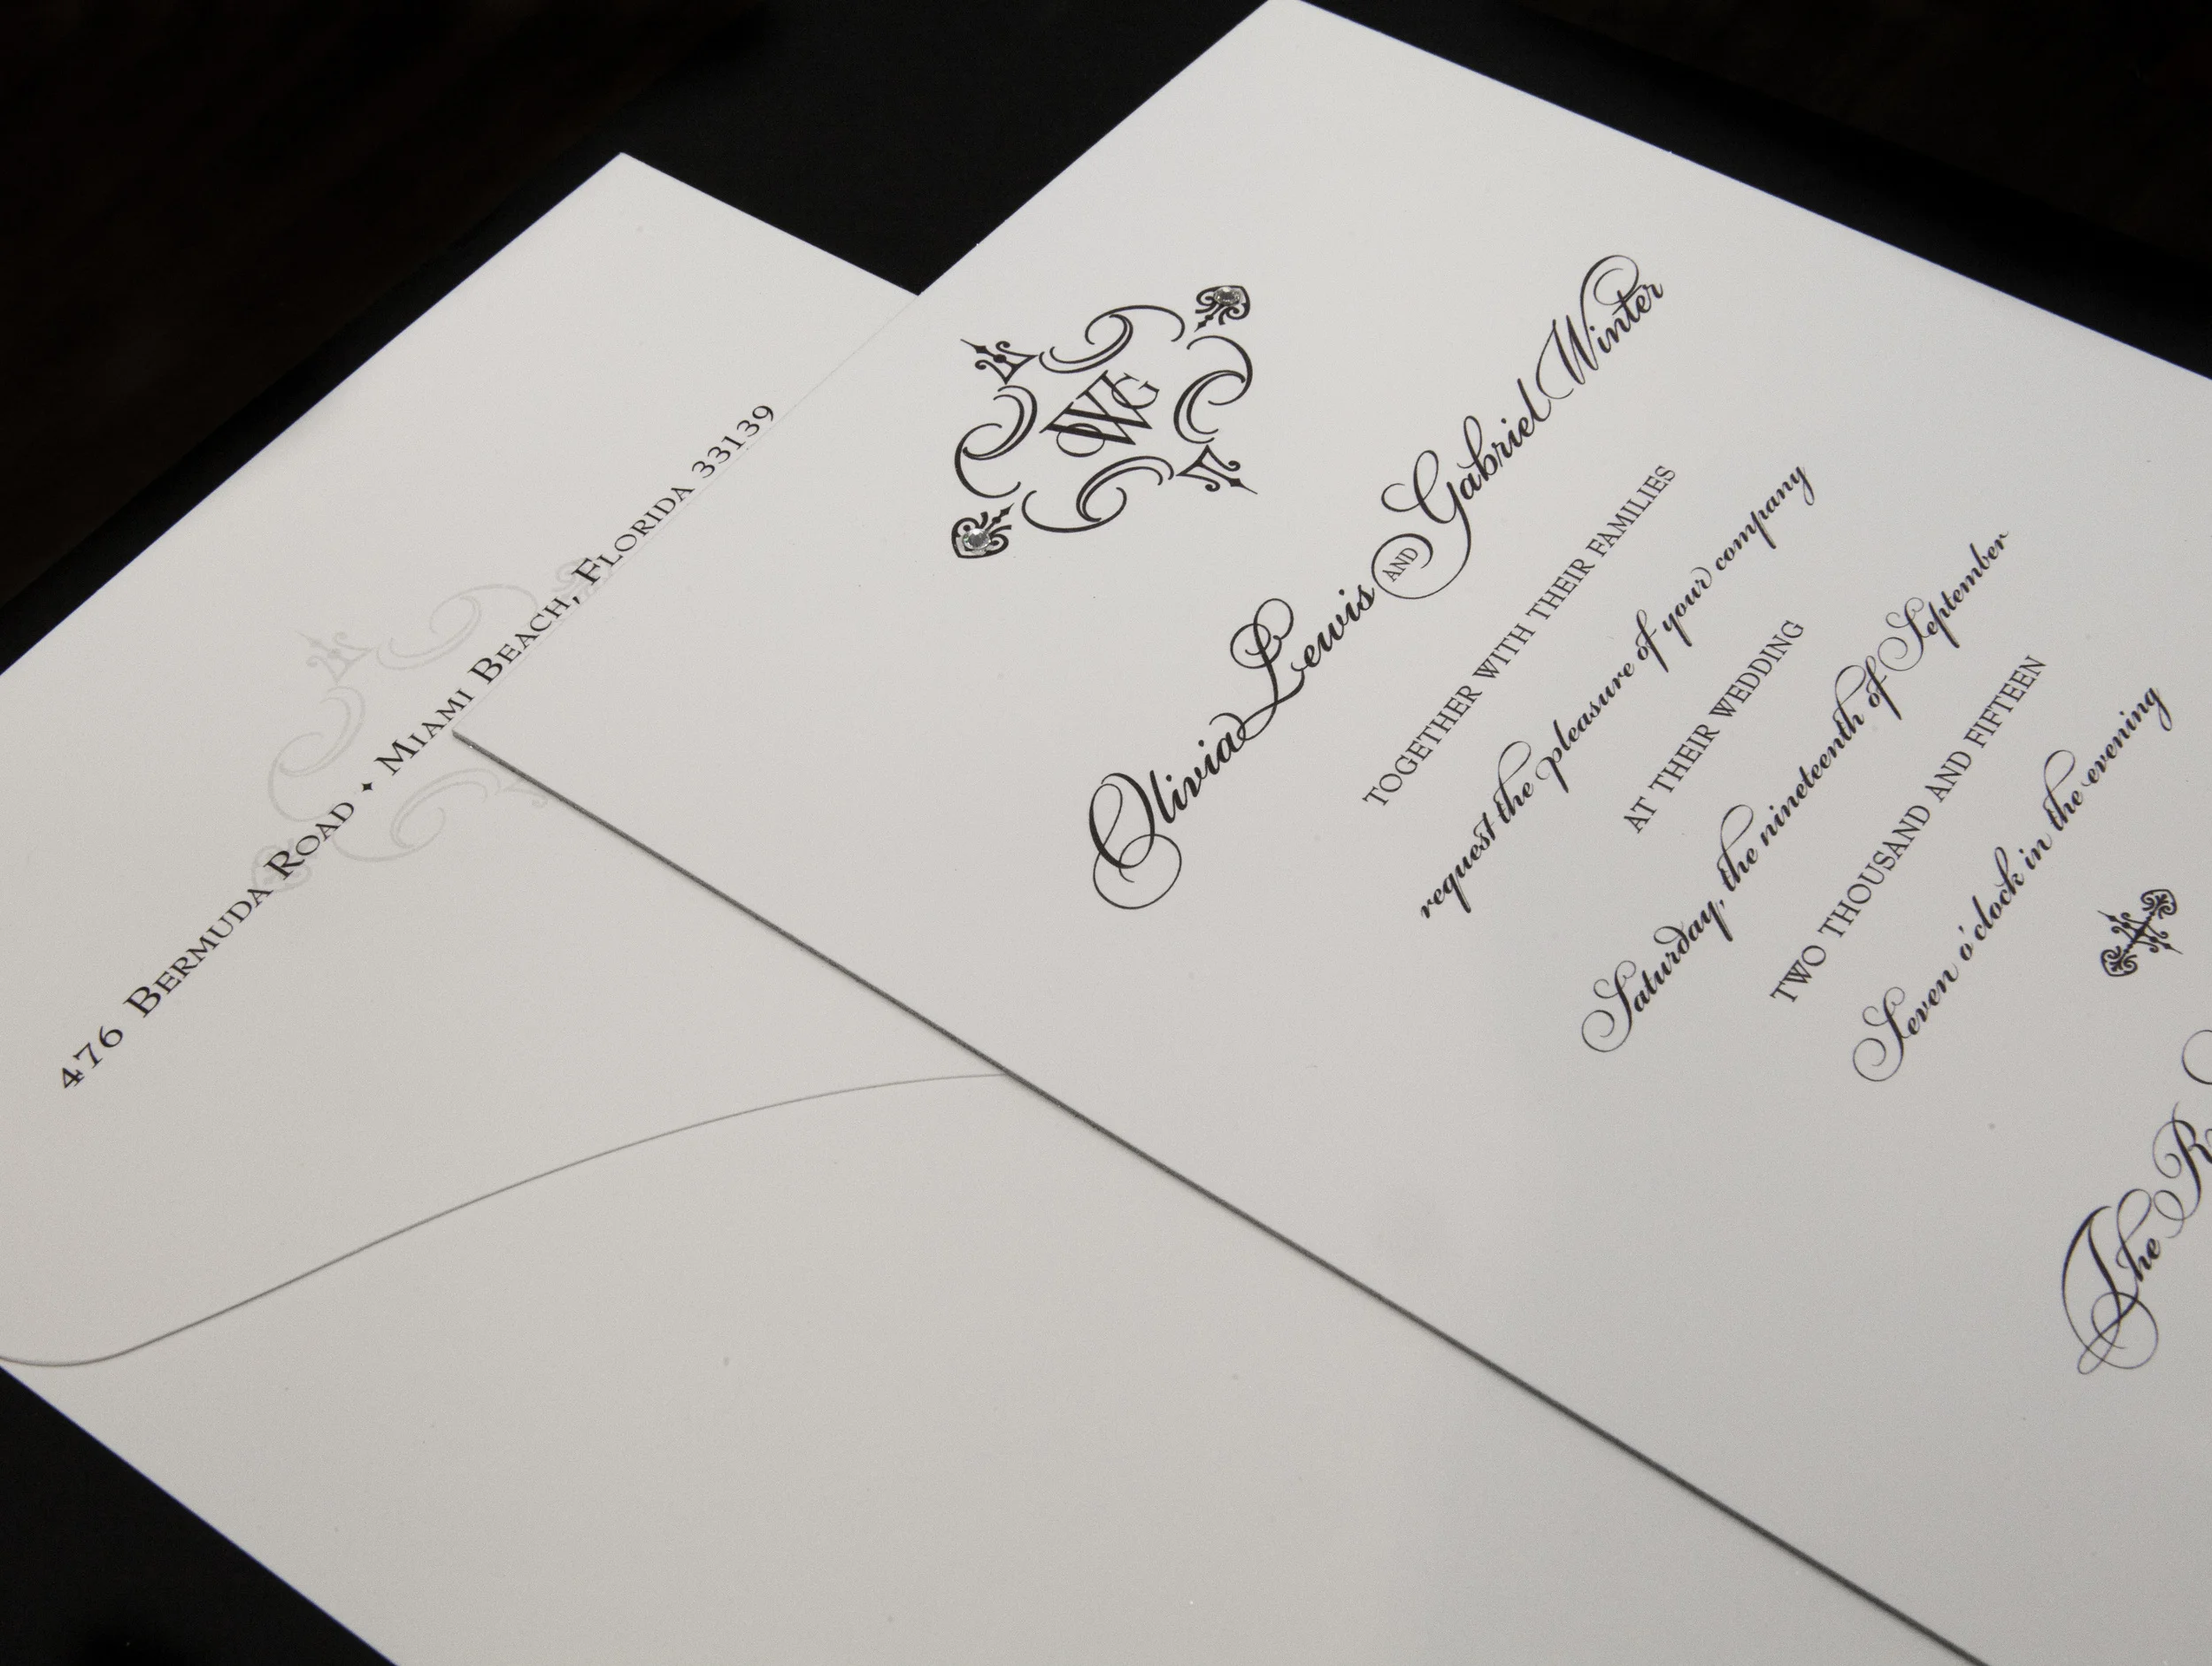 476 BERMUDA ROAD ✦ MIAMI BEACH, FLORIDA 33139
WG
Olivia Lewis AND Gabriel Winter
TOGETHER WITH THEIR FAMILIES
request the pleasure of your company
AT THEIR WEDDING
Saturday, the nineteenth of September
TWO THOUSAND AND FIFTEEN
Seven o'clock in the evening
The